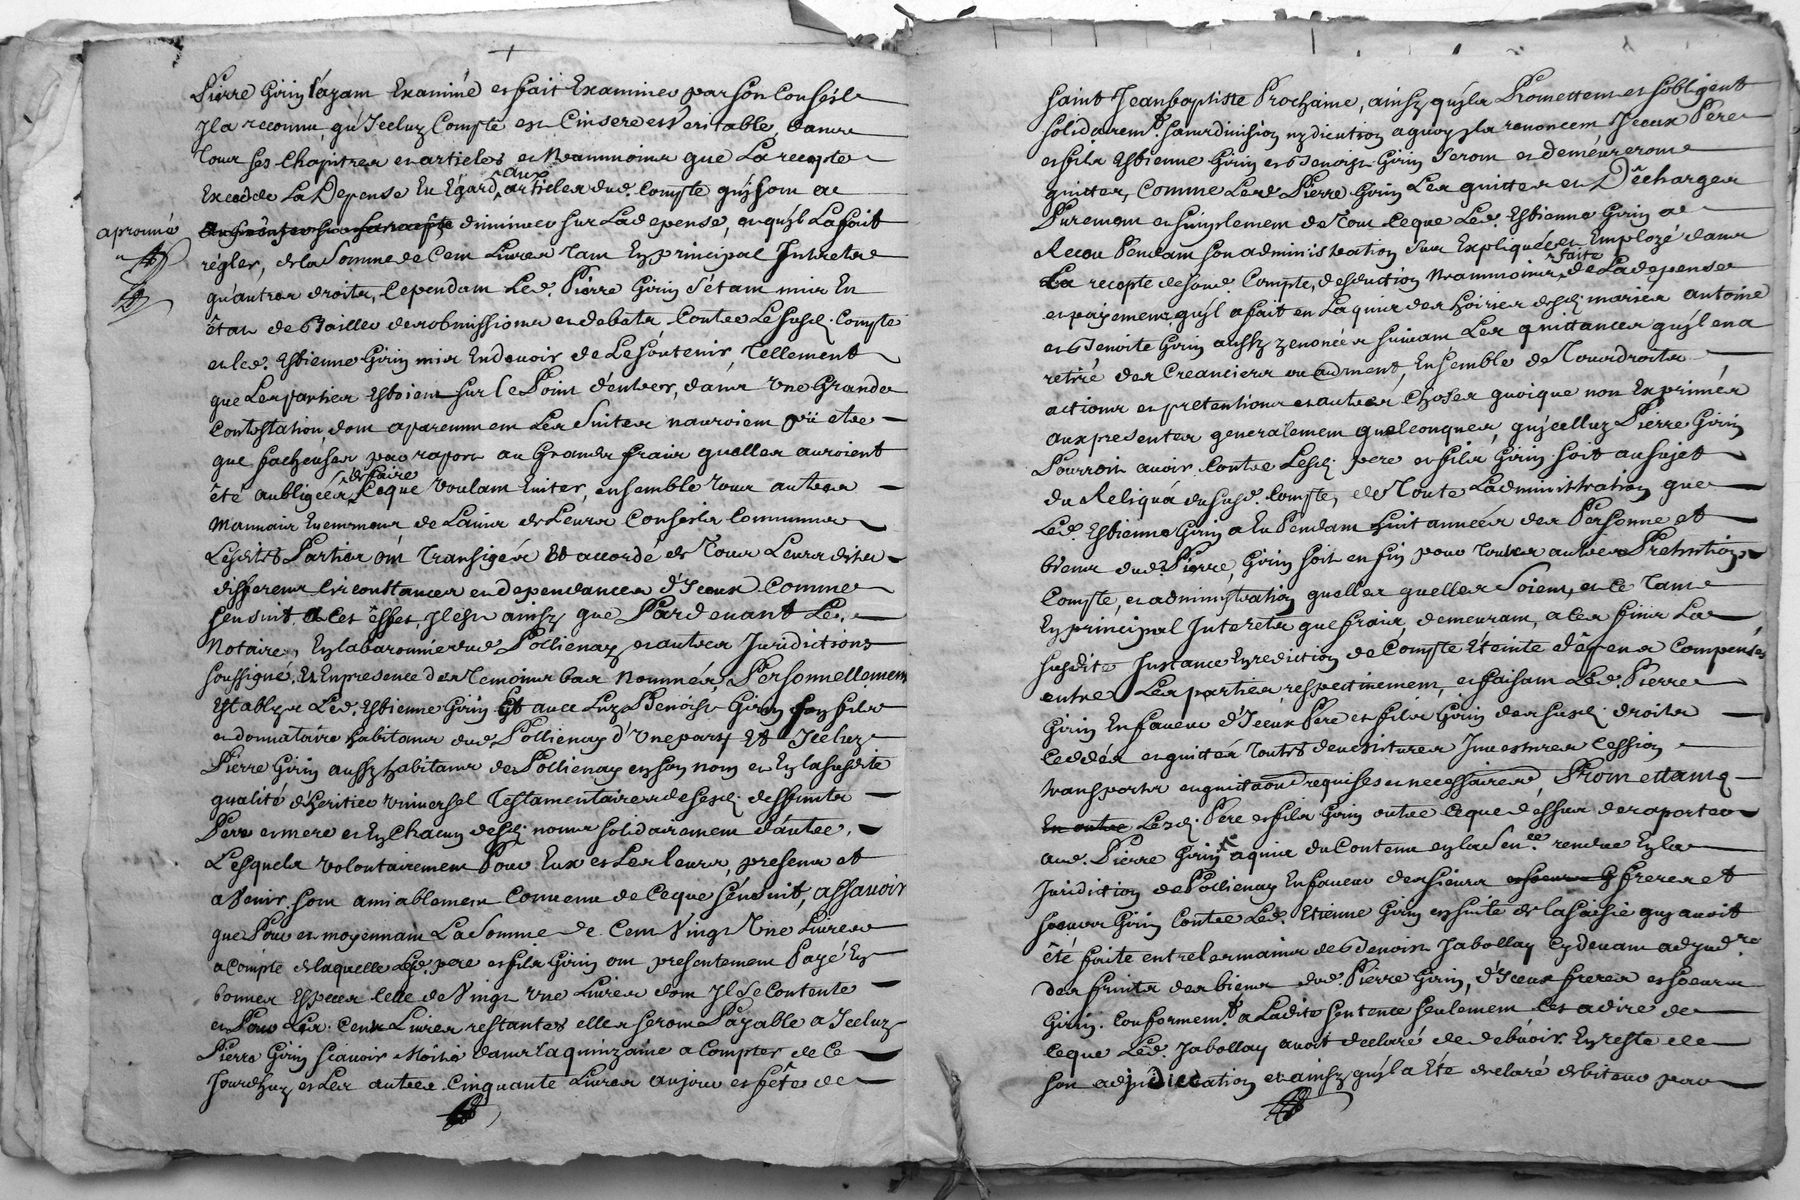 Pierre Girin l'ayant Examiné et fait Examiner par son Conseil
Il a reconnu qu'Iceluy Compte est Cinsere et Veritable, dans
Tous ses Chapitres et articles et Neanmoins que La recepte
Excedde La Depense Eu Egard aux articles dud. Compte quy sont a
aprouué
diminuer sur La depense, et qu'yl La fait
régler, de la Somme de Cent Livres Tant En principal Interets
qu'autres droits, Cependant Led. Pierre Girin s'étant mis En
état de Bailler des obmissions et debats Contre Le susd. Compte
et led. Estienne Girin mis En devoir de Le soutenir, Tellement
que Les parties Estoient sur le Point d'entrer, dans Une Grande
Contestation dont aparemment Les Suites nauroient pü etre
que facheuses par raport au Grands fraix quelles auroient
été aubligées de faire Ceque voulant Eviter, ensemble tous autres
Mauvais Evenemens de Lavis de Leurs Conseils Communs
Lesdites Parties ont Transigés Et accordé de Tous Leurs dits
differens Circonstances et dependances d'Iceux Comme
sensuit A Cet éffet, Il est ainsy que Pardevant Le
Notaire, En la baronnie dud. Pollienay et autres Juridictions
soussigné, Et En presence des Temoins bas Nommés, Personnellement
Establys Led. Estienne Girin Et avec Luy Benoist Girin son fils
et donnataire habitans dud. Pollienay d'Une part Et Iceluy
Pierre Girin aussy habitant de Pollienay en son nom et En la susdite
qualité d'heritier universel Testamentaire de sesd. deffunts
Pere et mere et En Chacun desd. noms solidairement d'autre,
Lesquels volontairement Pour Eux et Les leurs, presens et
a Venir. sont amiablement Convenu de Ceque sénsuit, assavoir
que Pour et moyennant La Somme de Cent Vingt Une Livres
a Compte de laquelle Lesd. pere et fils Girin ont presentement Payé En
bonnes Especes Celle de Vingt une Livres dont Il se Contente
et Pour Les Cent Livres restantes elles seront Payable a Iceluy
Pierre Girin scavoir Moitié dans la quinzaine a Compter de Ce
Jourdhuy et Les autres Cinquante Livres au jour et fête de
saint Jean baptiste Prochaine, ainsy qu'yls Promettent et sobligent
solidairemt. sans division ny dicution a quoy yls renoncent, Iceux Pere
et fils Estienne Girin et Benoist Girin seront et demeureront
quittes, Comme Led. Pierre Girin Les quitte et Décharge
Purement et simplement de Tout Ceque Led. Estienne Girin a
Recu Pendant son administration Sus Expliquée et Employé dans
La recepte desond. Compte, desduction Neanmoins faite de La depense
et payement qu'yl a fait en Laquit des hoiries desd. mariés antoine
et Benoite Girin aussy y enoncés suivant Les quittances qu'yl en a
retiré des Creanciers ou autrement, Ensemble de Tous droits
actions et pretentions et autres Choses quoique non Exprimés
aux presentes generalement quelconques, qu'jcelluy Pierre Girin
Pourroit avoir Contre Lesd. pere et fils Girin soit au sujet
du Reliqua dususd. Compte, de Toute Ladministration que
Led. Estienne Girin a Eu Pendant huit années des Personne et
biens dud. Pierre Girin soit en fin pour Toutes autres Pretentions
Compte, et administration quelles quelles Soient, et ce Tant
En principal Interets que fraix, demeurant, a Ces fins La
susdite Instance En rediction de Compte Eteinte dépens Compensés
entre Les parties respectivement, et faisant Led. Pierre
Girin En faveur d'Iceux Pere et fils Girin des susd. droits
Ceddés et quittés Toutes devestitures Investures Cession
transports et quittance requises et necessaires, Promettant
En outre Lesd. Pere et fils Girin outre Ceque dessus de raporter
aud. Pierre Girin aquis du Contenu en la Sence. rendue En la
Juridiction de Pollienay En faveur des sieurs freres et
soeurs Girin Contre Led. Etienne Girin en suite de la saisie quy avoit
été faite entre les mains de Benoist Jabollay Cy devant adjudre.
des fruits des biens dud. Pierre Girin, d'Iceux freres et soeurs
Girin. Conformemt. a Ladite sentence seulement Cet a dire de
Ceque Led. Jabollay avoit declaré de debvoir En reste de
son adjudiccation et ainsy qu'yl a Eté declaré debiteur par